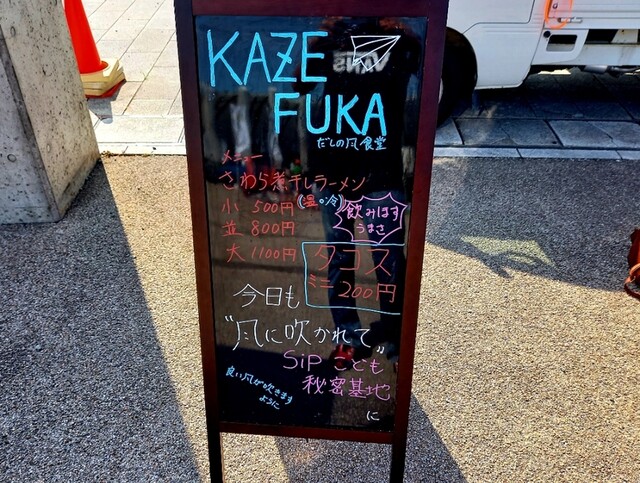 KAZE
FUKA
だしの風食堂
メニュー
さわら煮干しラーメン
(温・冷)
小 500円
並 800円
大 1100円
飲みほす
うまさ
タコス
ミニ 200円
今日も
"風に吹かれて"
SiP こども
秘密基地
に
良い風が吹きます
ように